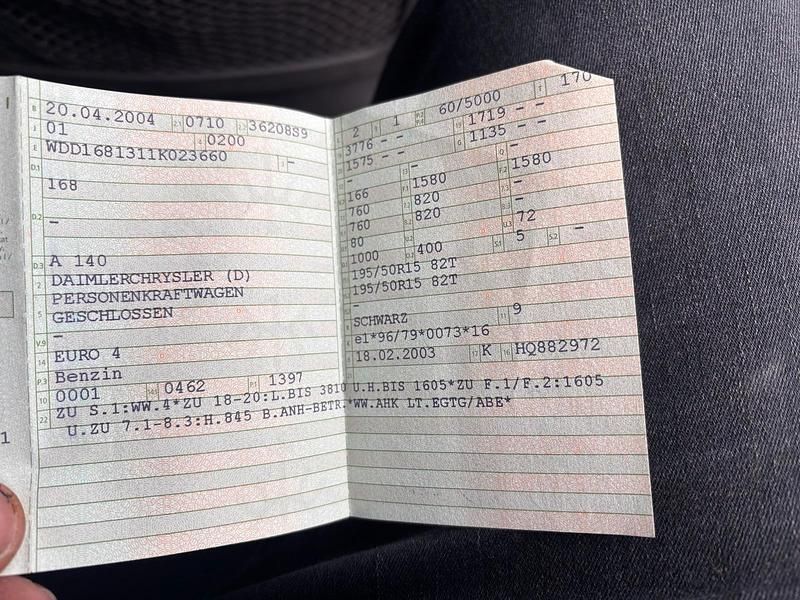 B 20.04.2004 2.1 0710 2.2 36208S9
J 01 4 0200
E WDD1681311K023660 3 -
D.1
168
D.2 -
D.3 A 140
2 DAIMLERCHRYSLER (D)
PERSONENKRAFTWAGEN
5 GESCHLOSSEN
V.9 -
14 EURO 4
P.3 Benzin
10 0001 14.1 0462 P.1 1397
22 ZU S.1:WW.4*ZU 18-20:L.BIS 3810 U.H.BIS 1605*ZU F.1/F.2:1605
U.ZU 7.1-8.3:H.845 B.ANH-BETR.*WW.AHK LT.EGTG/ABE*
2 1 60/5000 T 170
3776 - - 1719 - -
1575 - - G 1135 - -
- - Q -
166 1580 F.2 1580
760 820 7.3 -
760 820 8.3 -
80 U.2 - U.3 72
1000 O.2 400 S.1 5 S.2 -
195/50R15 82T
195/50R15 82T
-
SCHWARZ 11 9
e1*96/79*0073*16
18.02.2003 17 K 16 HQ882972
1